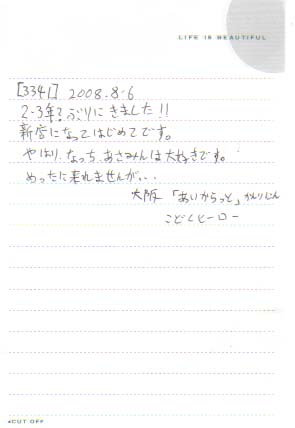 LIFE IS BEAUTIFUL
[3341] 2008.8.6
2-3年?ぶりにきました!!
新店になってはじめてです。
やはり、なっち、あさみんは大好きです。
めったに来れませんが、、
大阪 「あいからっと」かんりじん
こどくヒーロー
◂CUT OFF